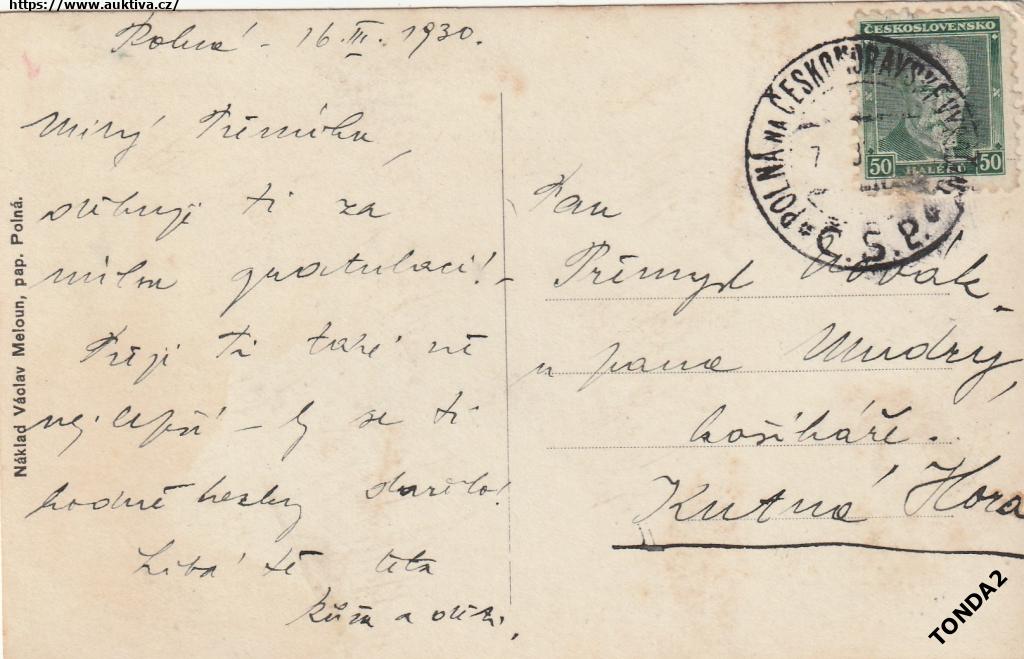 https://www.auktiva.cz/
Polná - 16 III. 1930.
Milý
děkuji ti za
milou gratulaci! -
Přeji ti také vše
nejlepší - by se ti
hodně hezky dařilo!
Líbá tě teta
Růža a děti.
Náklad Václav Meloun, pap. Polná.
ČESKOSLOVENSKO
50 HALÉŘŮ 50
POLNÁ NA ČESKOMORAVSKÉ
Č.S.P.
Pan
Přemysl Novák -
u pana Mudry,
košíkáře.
Kutná Hora
TONDA2